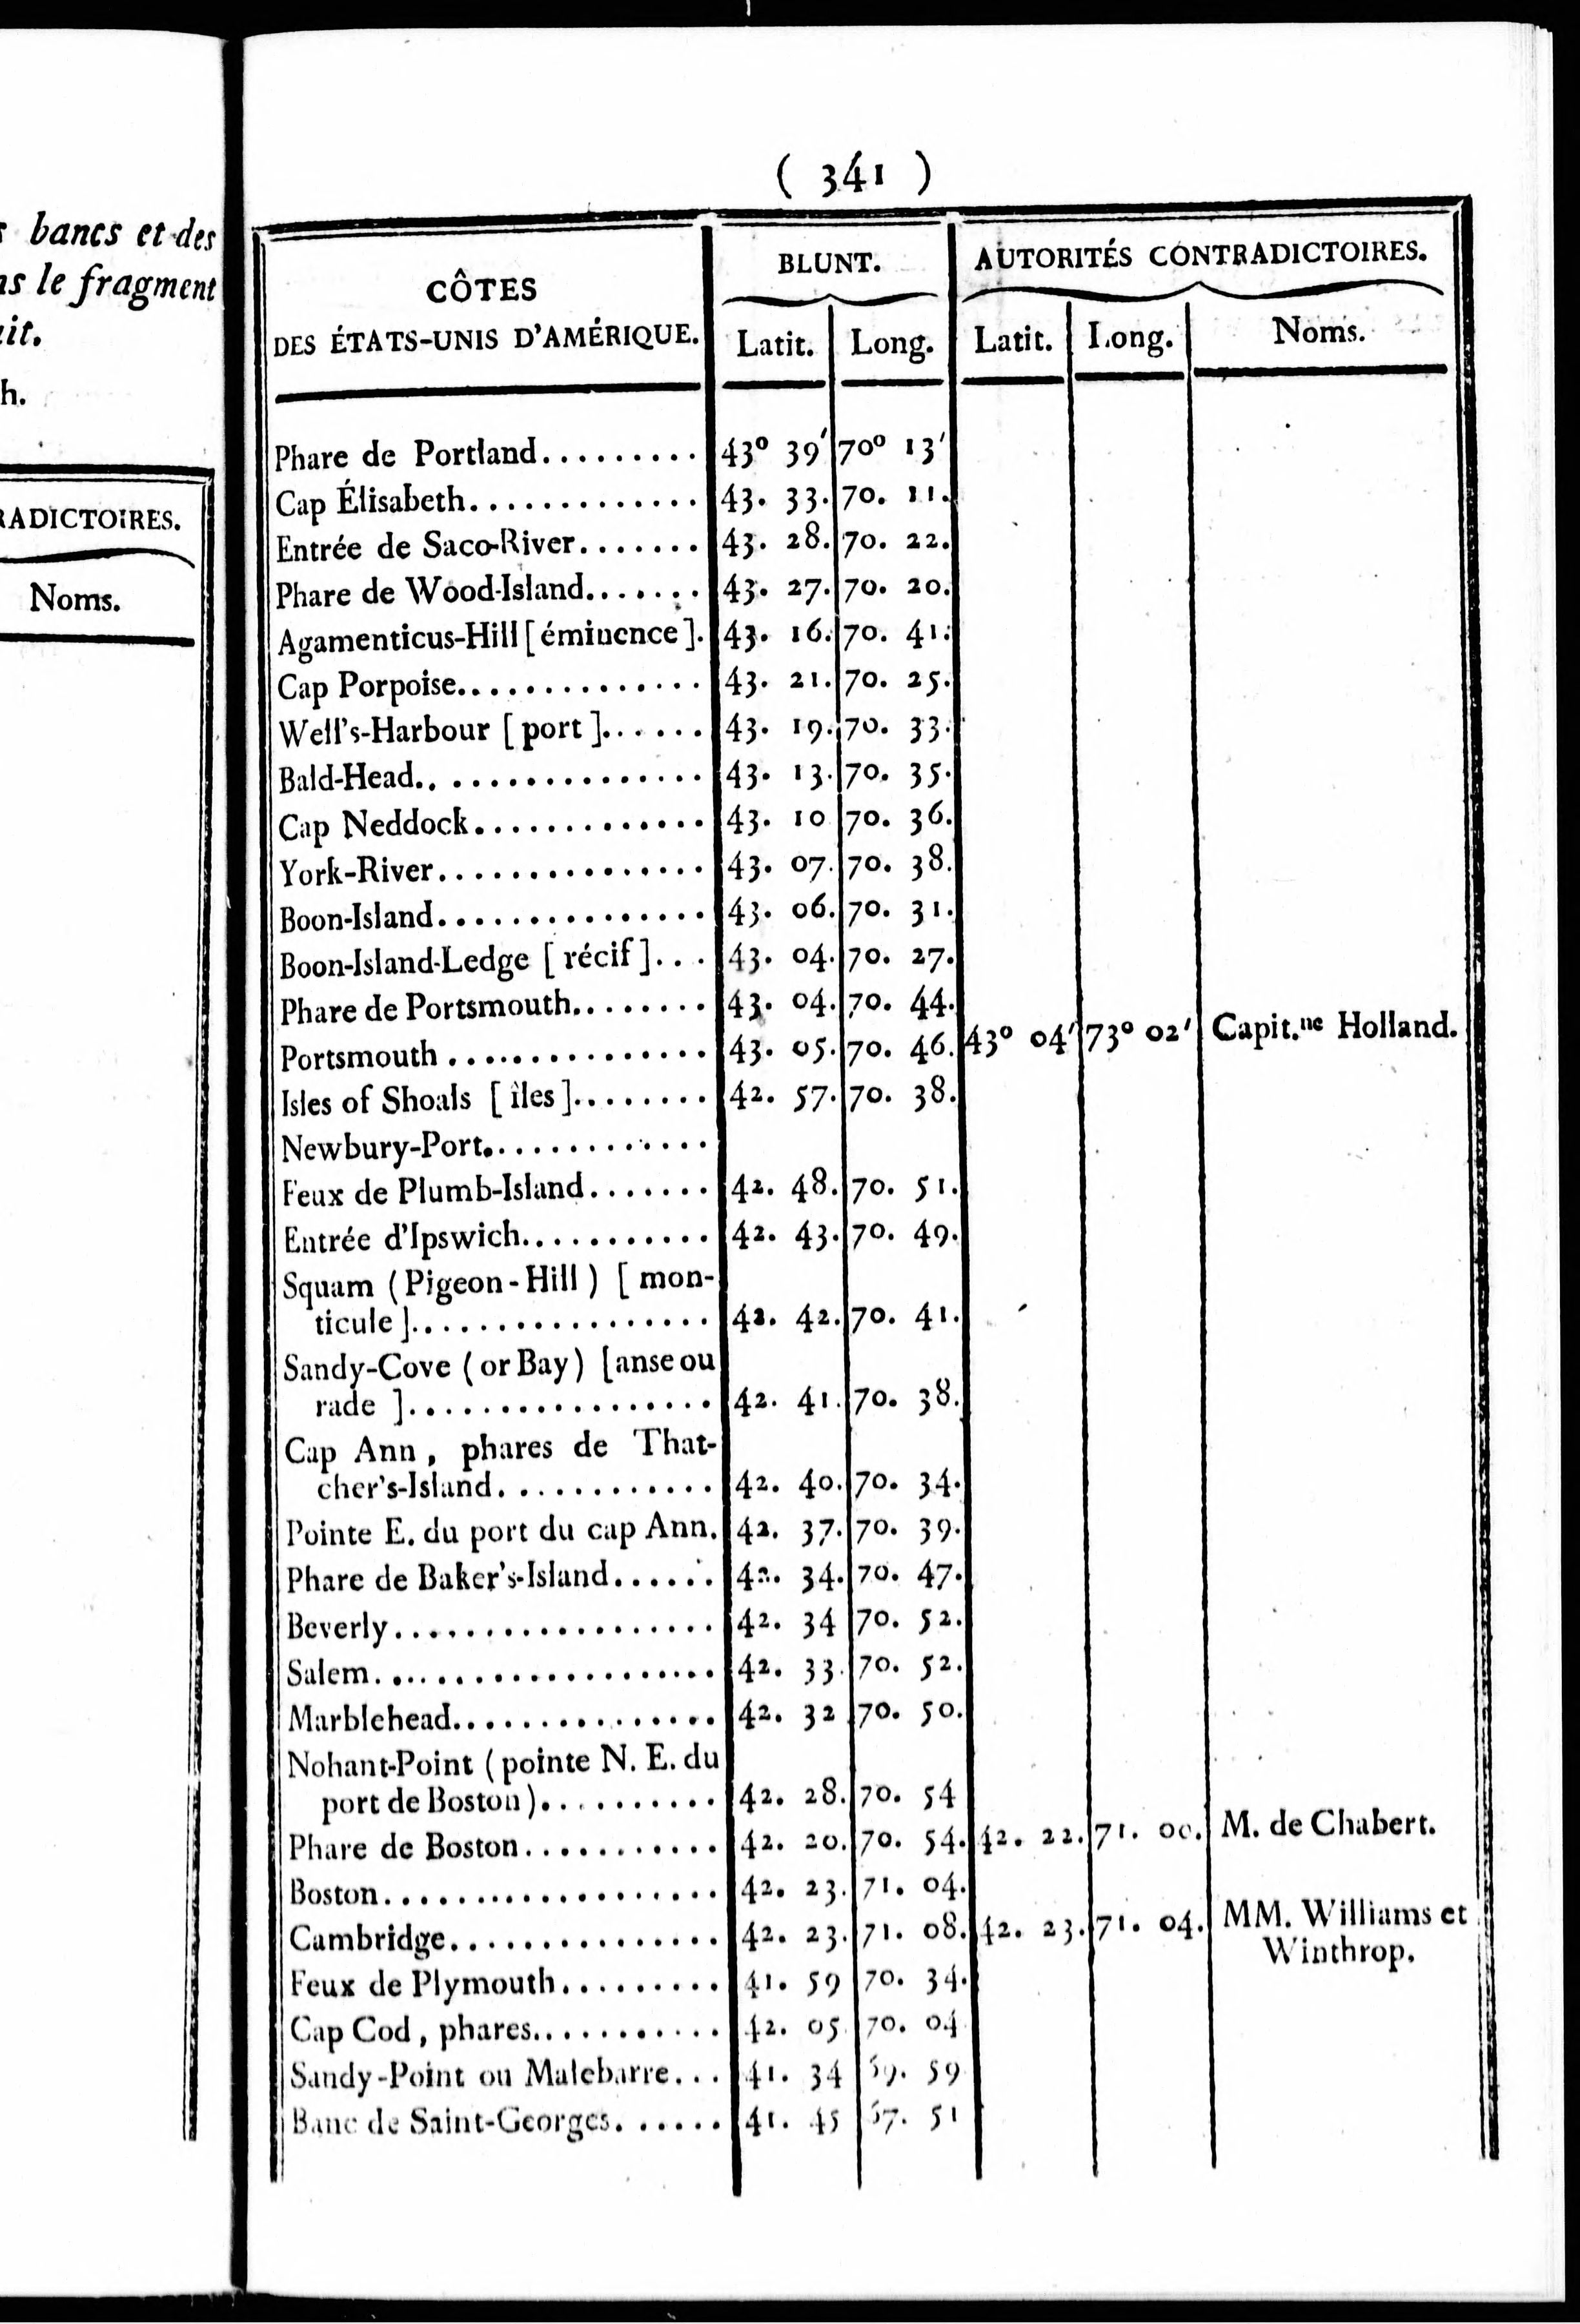 s bancs et des
ns le fragment
ait.
h.
RADICTOIRES.
Noms.
( 341 )
CÔTES
DES ÉTATS-UNIS D'AMÉRIQUE.
BLUNT.
AUTORITÉS CONTRADICTOIRES.
Latit. Long. Latit. Long. Noms.
Phare de Portland......... 43° 39' 70° 13'
Cap Élisabeth............. 43. 33. 70. 11.
Entrée de Saco-River....... 43. 28. 70. 22.
Phare de Wood-Island....... 43. 27. 70. 20.
Agamenticus-Hill [éminence]. 43. 16. 70. 41.
Cap Porpoise.............. 43. 21. 70. 25.
Well's-Harbour [port]...... 43. 19. 70. 33.
Bald-Head................ 43. 13. 70. 35.
Cap Neddock............. 43. 10 70. 36.
York-River............... 43. 07. 70. 38.
Boon-Island............... 43. 06. 70. 31.
Boon-Island-Ledge [récif]... 43. 04. 70. 27.
Phare de Portsmouth........ 43. 04. 70. 44.
Portsmouth............... 43. 05. 70. 46. 43° 04' 73° 02' Capit.ne Holland.
Isles of Shoals [îles]........ 42. 57. 70. 38.
Newbury-Port.............
Feux de Plumb-Island....... 42. 48. 70. 51.
Entrée d'Ipswich........... 42. 43. 70. 49.
Squam (Pigeon-Hill) [mon-
ticule]................. 42. 42. 70. 41.
Sandy-Cove (or Bay) [anse ou
rade ]................. 42. 41. 70. 38.
Cap Ann, phares de That-
cher's-Island............ 42. 40. 70. 34.
Pointe E. du port du cap Ann. 42. 37. 70. 39.
Phare de Baker's-Island...... 42. 34. 70. 47.
Beverly.................. 42. 34 70. 52.
Salem................... 42. 33. 70. 52.
Marblehead............... 42. 32 70. 50.
Nohant-Point (pointe N. E. du
port de Boston).......... 42. 28. 70. 54
Phare de Boston........... 42. 20. 70. 54. 42. 22. 71. 00. M. de Chabert.
Boston................... 42. 23. 71. 04.
Cambridge............... 42. 23. 71. 08. 42. 23. 71. 04. MM. Williams et
Winthrop.
Feux de Plymouth......... 41. 59 70. 34.
Cap Cod, phares........... 42. 05 70. 04
Sandy-Point ou Malebarre... 41. 34 69. 59
Banc de Saint-Georges...... 41. 45 67. 51